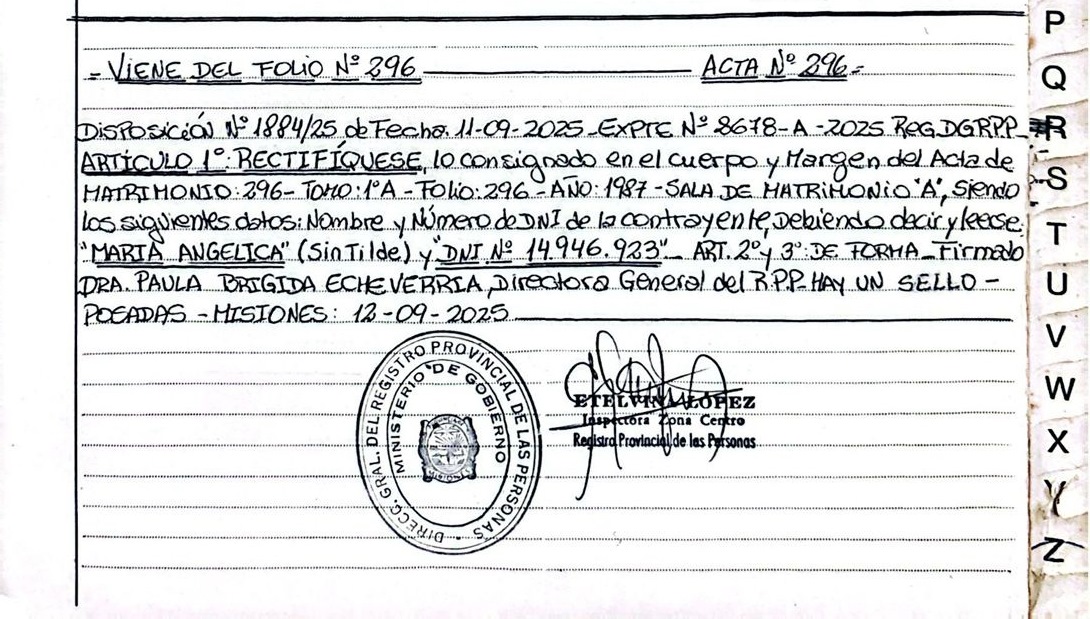 - VIENE DEL FOLIO Nº 296 ACTA Nº 296.-
DISPOSICIÓN Nº 1884/25 de Fecha. 11-09-2025 - EXPTE Nº 8678-A-2025 REG.DGRPP-
ARTÍCULO 1º: RECTIFÍQUESE, lo consignado en el cuerpo y Margen del Acta de
MATRIMONIO: 296 - TOMO: 1ºA - FOLIO: 296 - AÑO: 1987 - SALA DE MATRIMONIO "A", siendo
los siguientes datos: Nombre y Número de DNI de la contrayente, Debiendo decir y leerse:
"MARIA ANGELICA" (Sin Tilde) y "DNI Nº 14.946.923" - ART. 2º y 3º: DE FORMA - Firmado
DRA. PAULA BRIGIDA ECHEVERRIA, Directora General del R.P.P. HAY UN SELLO -
POSADAS - MISIONES: 12-09-2025
DIRECC. GRAL. DEL REGISTRO PROVINCIAL DE LAS PERSONAS
MINISTERIO DE GOBIERNO
ETELVINA LÓPEZ
Inspectora Zona Centro
Registro Provincial de las Personas
P
Q
R
S
T
U
V
W
X
Y
Z